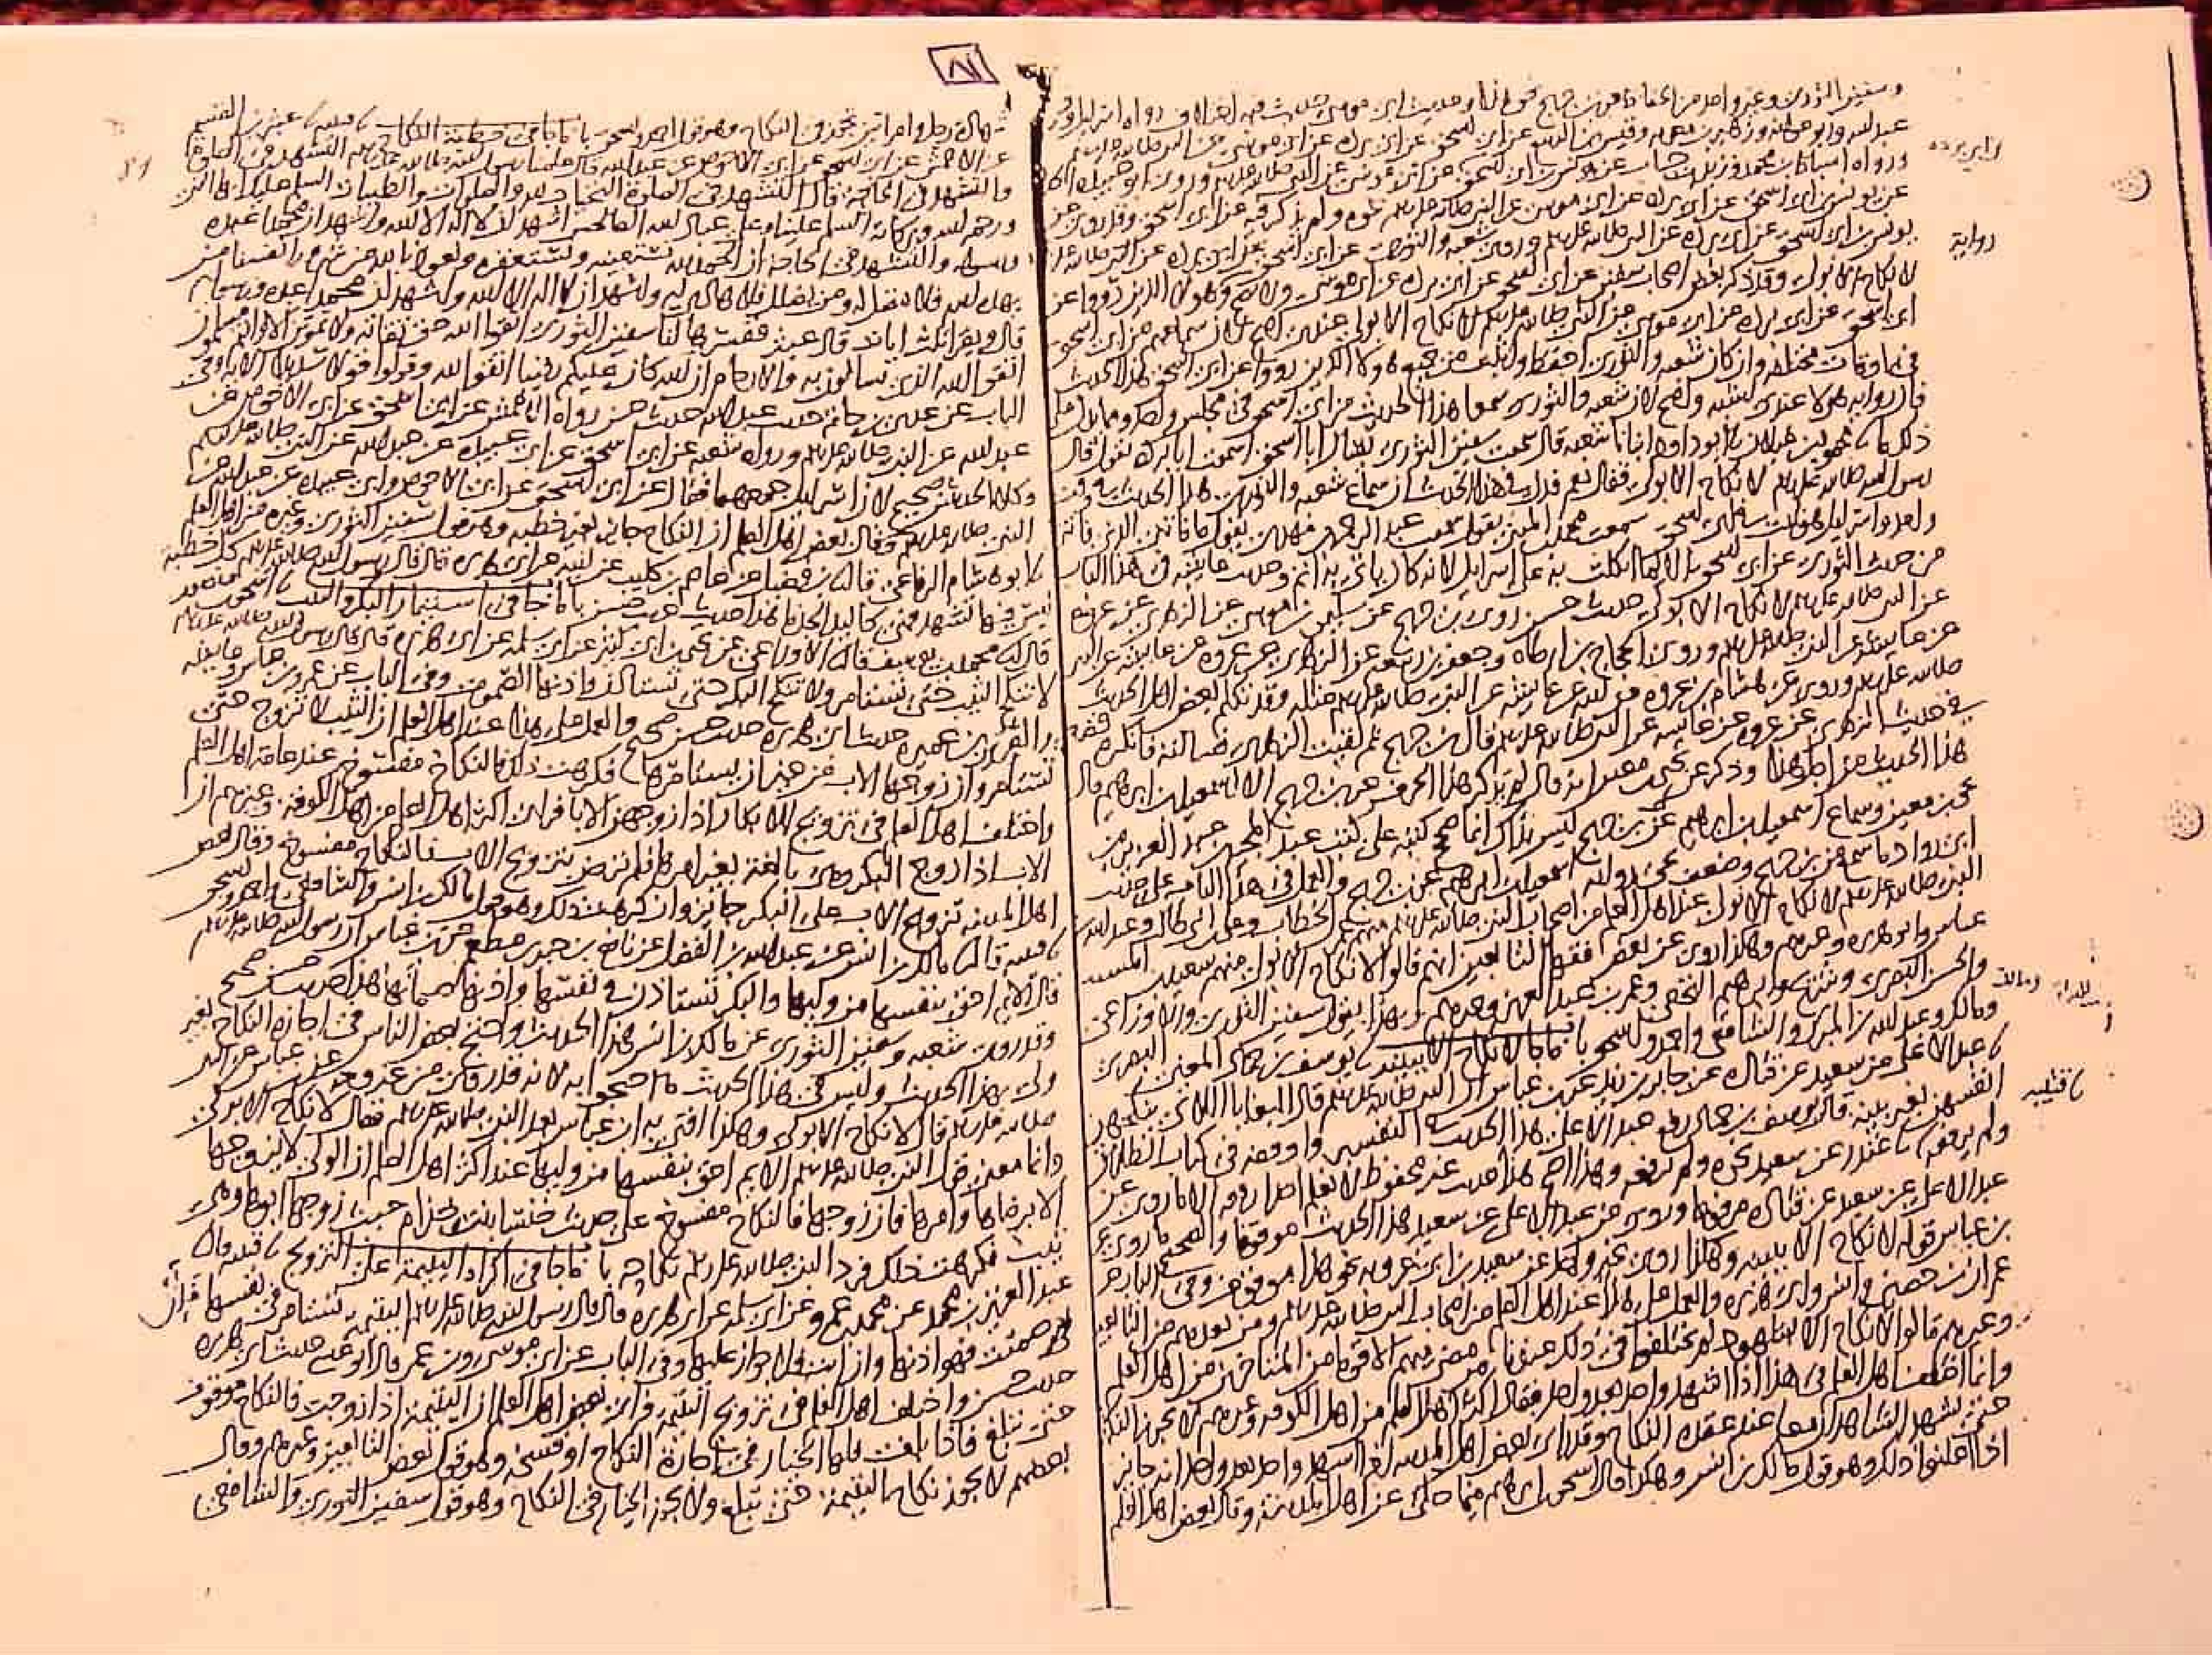 وسفين الثوري وغير واحد من الحفاظ عن بن جريج نحو هذا وحديث ابي موسى حديث فيه اختلاف رواه اسرايل وشريك بن
عبد الله وابو عوانه وزهير بن معويه وقيس بن الربيع عن ابي اسحق عن ابي برده عن ابي موسى عن النبي صلى الله عليه وسلم
ورواه اسباط بن محمد وزيد بن حباب عن يونس بن ابي اسحق عن ابي اسحق عن ابي برده عن ابي موسى عن النبي صلى الله عليه وسلم وروى ابو عبيده الحداد
عن يونس بن ابي اسحق عن ابي برده عن ابي موسى عن النبي صلى الله عليه وسلم نحوه ولم يذكر فيه عن ابي اسحق وقد روي عن
يونس بن ابي اسحق عن ابي برده عن النبي صلى الله عليه وسلم وروى شعبه والثوري عن ابي اسحق عن ابي برده عن النبي صلى الله عليه
لا نكاح الا بولي وقد ذكر بعض اصحاب سفين عن سفين عن ابي اسحق عن ابي برده عن ابي موسى ولا يصح وهولا الذين رووا عن
ابي اسحق عن ابي برده عن ابي موسى عن النبي صلى الله عليه وسلم لا نكاح الا بولي عندي اصح لان سماعهم من ابي اسحق
في اوقات مختلفه وان كان شعبه والثوري احفظ واثبت من جميع هولا الذين رووا عن ابي اسحق هذا الحديث
فان روايه هولا عندي اشبه واصح لان شعبه والثوري سمعا هذا الحديث من ابي اسحق في مجلس واحد ومما يدل على
ذلك ما محمود بن غيلان ابو داود انبانا شعبه قال سمعت سفين الثوري يسال ابا اسحق اسمعت ابا برده يقول قال
رسول الله صلى الله عليه وسلم لا نكاح الا بولي فقال نعم فدل في هذا الحديث ان سماع شعبه والثوري هذا الحديث في وقت
واحد واسرايل هو ثبت في ابي اسحق سمعت محمد بن المثنى يقول سمعت عبد الرحمن بن مهدي يقول ما فاتني الذي فاتني
من حديث الثوري عن ابي اسحق الا لما اتكلت به على اسرايل لانه كان ياتي به اتم وحديث عايشه في هذا الباب
عن النبي صلى الله عليه وسلم لا نكاح الا بولي حديث حسن روى بن جريج عن سليمن بن موسى عن الزهري عن عروه
عن عايشه عن النبي صلى الله عليه وسلم وروى الحجاج بن ارطاه وجعفر بن ربيعه عن الزهري عن عروه عن عايشه عن النبي
صلى الله عليه وسلم وروي عن هشام بن عروه عن ابيه عن عايشه عن النبي صلى الله عليه وسلم مثله وقد تكلم بعض اهل الحديث
في حديث الزهري عن عروه عن عايشه عن النبي صلى الله عليه وسلم قال بن جريج ثم لقيت الزهري فسالته فانكره
هذا الحديث من اجل هذا وذكر عن يحيى بن معين انه قال لم يذكر هذا الحرف عن بن جريج الا اسمعيل بن ابرهيم قال
يحيى بن معين وسماع اسمعيل بن ابرهيم عن بن جريج ليس بذاك انما صحح كتبه على كتب عبد المجيد بن عبد العزيز بن
ابي رواد ما سمع من بن جريج وضعف يحيى روايه اسمعيل بن ابرهيم عن بن جريج والعمل في هذا الباب على حديث
النبي صلى الله عليه وسلم لا نكاح الا بولي عند اهل العلم من اصحاب النبي صلى الله عليه وسلم منهم عمر بن الخطاب وعلي بن ابي طالب وعبد الله بن
عباس وابو هريره وغيرهم وهكذا روي عن بعض فقها التابعين انهم قالوا لا نكاح الا بولي منهم سعيد بن المسيب
والحسن البصري وشريح وابرهيم النخعي وعمر بن عبد العزيز وغيرهم وبهذا يقول سفين الثوري والاوزاعي
ومالك وعبد الله بن المبارك والشافعي واحمد واسحق باب ما جا لا نكاح الا ببينه يوسف بن حماد المعني البصري
عبد الاعلى عن سعيد عن قتاده عن جابر بن زيد عن بن عباس ان النبي صلى الله عليه وسلم قال البغايا اللاتي ينكحن
انفسهن بغير بينه قال يوسف بن حماد رفع عبد الاعلى هذا الحديث في التفسير واوقفه في كتاب الطلاق
ولم يرفعه غندر عن سعيد نحوه ولم يرفعه وهذا اصح هذا حديث غير محفوظ لا نعلم احدا رفعه الا ما روي عن
عبد الاعلى عن سعيد عن قتاده مرفوعا وروي عن عبد الاعلى عن سعيد هذا الحديث موقوفا والصحيح ما روي عن
بن عباس قوله لا نكاح الا ببينه وهكذا روى غير واحد عن سعيد بن ابي عروبه نحو هذا موقوف وفي الباب عن
عمران بن حصين وانس وابي هريره والعمل على هذا عند اهل العلم من اصحاب النبي صلى الله عليه وسلم ومن بعدهم من التابعين
وغيرهم قالوا لا نكاح الا بشهود لم يختلفوا في ذلك عندنا من مضى منهم الا قوما من المتاخرين من اهل العلم
وانما اختلف اهل العلم في هذا اذا شهد واحد بعد واحد فقال اكثر اهل العلم من اهل الكوفه وغيرهم لا يجوز النكاح
حتى يشهد الشاهدان معا عند عقده النكاح وقد راى بعض اهل المدينه اذا اشهد واحد بعد واحد انه جايز
اذا اعلنوا ذلك وهو قول مالك بن انس وهكذا قال اسحق بن ابرهيم فيما حكى عن اهل المدينه وقال بعض اهل العلم
ابي برده
رواية
قتيبه
٨١
شهاده رجل وامراتين تجوز في النكاح وهو قول احمد واسحق باب ما جا في خطبة النكاح قتيبه عبثر بن القسم
عن الاعمش عن ابي اسحق عن ابي الاحوص عن عبد الله قال علمنا رسول الله صلى الله عليه وسلم التشهد في الصلوة
والتشهد في الحاجه قال التشهد في الصلوة التحيات لله والصلوات والطيبات السلم عليك ايها النبي
ورحمة الله وبركاته السلم علينا وعلى عباد الله الصالحين اشهد ان لا اله الا الله واشهد ان محمدا عبده
ورسوله والتشهد في الحاجة ان الحمد لله نستعينه ونستغفره ونعوذ بالله من شرور انفسنا من
يهده الله فلا مضل له ومن يضلل فلا هادي له واشهد ان لا اله الا الله واشهد ان محمدا عبده ورسوله
قال ويقرا ثلث ايات قال عبثر ففسرها لنا سفين الثوري اتقوا الله حق تقاته ولا تموتن الا وانتم مسلمون
اتقوا الله الذي تسالون به والارحام ان الله كان عليكم رقيبا اتقوا الله وقولوا قولا سديدا الايه وفي
الباب عن عدي بن حاتم حديث عبد الله حديث حسن رواه الاعمش عن ابي اسحق عن ابي الاحوص عن
عبد الله عن النبي صلى الله عليه وسلم ورواه شعبه عن ابي اسحق عن ابي عبيده عن عبد الله عن النبي صلى الله عليه وسلم
وكلا الحديثين صحيح لان اسرايل جمعهما فقال عن ابي اسحق عن ابي الاحوص وابي عبيده عن عبد الله عن
النبي صلى الله عليه وسلم وقال بعض اهل العلم ان النكاح جايز بغير خطبه وهو قول سفين الثوري وغيره من اهل العلم
ابو هشام الرفاعي بن فضيل عن عاصم بن كليب عن ابيه عن ابي هريره قال قال رسول الله صلى الله عليه وسلم كل خطبة
ليس فيها تشهد فهي كاليد الجذما هذا حديث حسن باب ما جا في استيمار البكر والثيب اسحق بن منصور
محمد بن يوسف الاوزاعي عن يحيى بن ابي كثير عن ابي سلمه عن ابي هريره قال قال رسول الله صلى الله عليه وسلم
لا تنكح الثيب حتى تستامر ولا تنكح البكر حتى تستاذن واذنها الصموت وفي الباب عن عمر وبن عباس وعايشه
والعرس بن عميره حديث ابي هريره حديث حسن صحيح والعمل على هذا عند اهل العلم ان الثيب لا تزوج حتى
تستامر وان زوجها الاب من غير ان يستامرها فكرهت ذلك فالنكاح مفسوخ عند عامة اهل العلم
واختلف اهل العلم في تزويج الابكار اذا زوجهن الابا فراى اكثر اهل العلم من اهل الكوفه وغيرهم ان
الاب اذا زوج البكر وهي بالغه بغير امرها فلم ترض بتزويج الاب فالنكاح مفسوخ وقال بعض
اهل المدينه تزويج الاب على البكر جايز وان كرهت ذلك وهو قول مالك بن انس والشافعي واحمد واسحق
قتيبه مالك بن انس عن عبد الله بن الفضل عن نافع بن جبير بن مطعم عن بن عباس ان رسول الله صلى الله عليه وسلم
قال الايم احق بنفسها من وليها والبكر تستاذن في نفسها واذنها صماتها هذا حديث حسن صحيح
وقد روى شعبه وسفين الثوري عن مالك بن انس هذا الحديث واحتج بعض الناس في اجازة النكاح بغير
ولي بهذا الحديث وليس في هذا الحديث ما احتجوا به لانه قد روي من غير وجه عن بن عباس عن النبي
صلى الله عليه وسلم قال لا نكاح الا بولي وهكذا افتى به بن عباس بعد النبي صلى الله عليه وسلم فقال لا نكاح الا بولي
وانما معنى قول النبي صلى الله عليه وسلم الايم احق بنفسها من وليها عند اكثر اهل العلم ان الولي لا يزوجها
الا برضاها وامرها فان زوجها فالنكاح مفسوخ على حديث خنسا بنت خذام حيث زوجها ابوها وهي
ثيب فكرهت ذلك فرد النبي صلى الله عليه وسلم نكاحه باب ما جا في اكراه اليتيمة على التزويج قتيبه
عبد العزيز بن محمد عن محمد بن عمرو عن ابي سلمه عن ابي هريره قال قال رسول الله صلى الله عليه وسلم اليتيمه تستامر في نفسها فان
صمتت فهو اذنها وان ابت فلا جواز عليها وفي الباب عن ابي موسى وبن عمر قال ابو عيسى حديث ابي هريره
حديث حسن واختلف اهل العلم في تزويج اليتيمة فراى بعض اهل العلم ان اليتيمة اذا زوجت فالنكاح موقوف
حتى تبلغ فاذا بلغت فلها الخيار في اجازة النكاح او فسخه وهو قول بعض التابعين وغيرهم وقال
بعضهم لا يجوز نكاح اليتيمة حتى تبلغ ولا يجوز الخيار في النكاح وهو قول سفين الثوري والشافعي